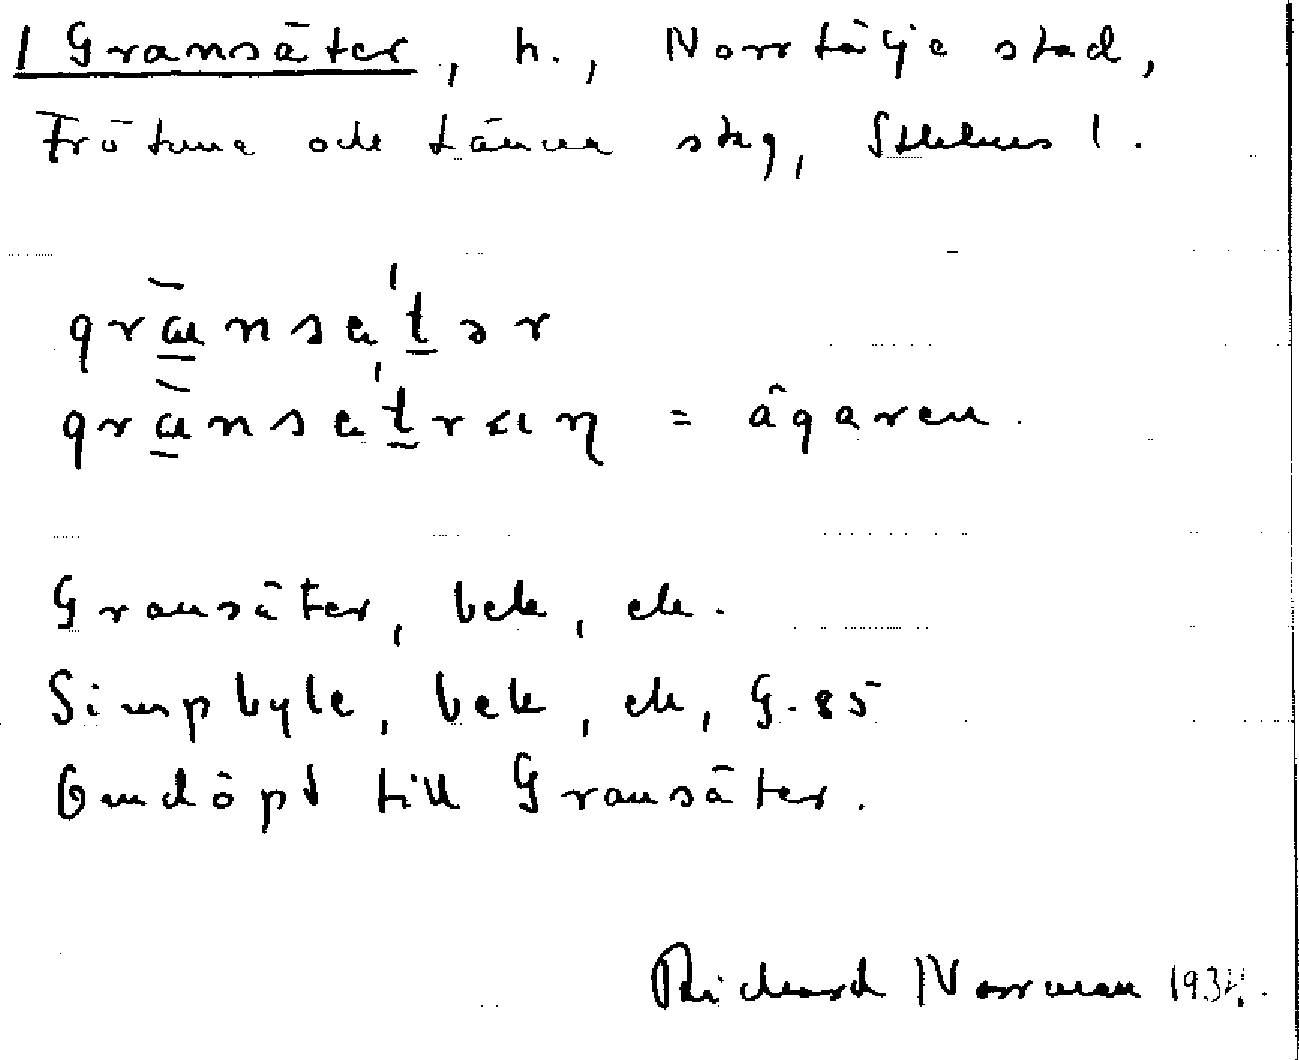 1 Gransäter, h., Norrtälje stad,
Frötuna och Länna skg, Sthlms l.
gränsätər
= ägaren.
Gransäter, bek, ek.
Simpbyle, bek, ek, G-85
Omdöpt till Gransäter.
Richard Norrman 1934.